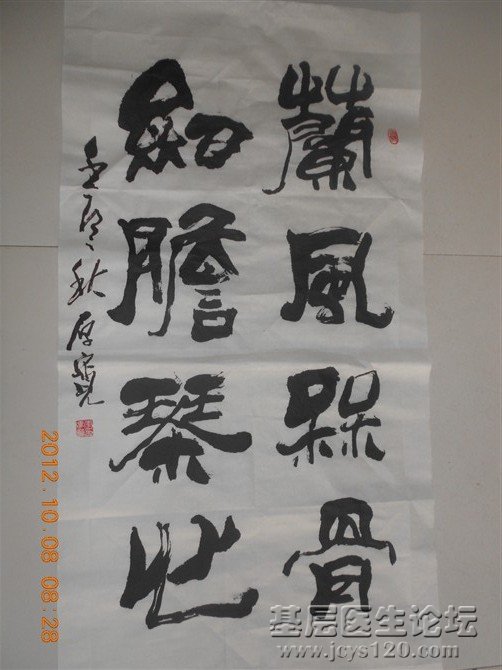 蘭風槑骨
劍膽琴心
壬辰秋厚
2012.10.08 08:28
基层医生论坛
www.jcys120.com